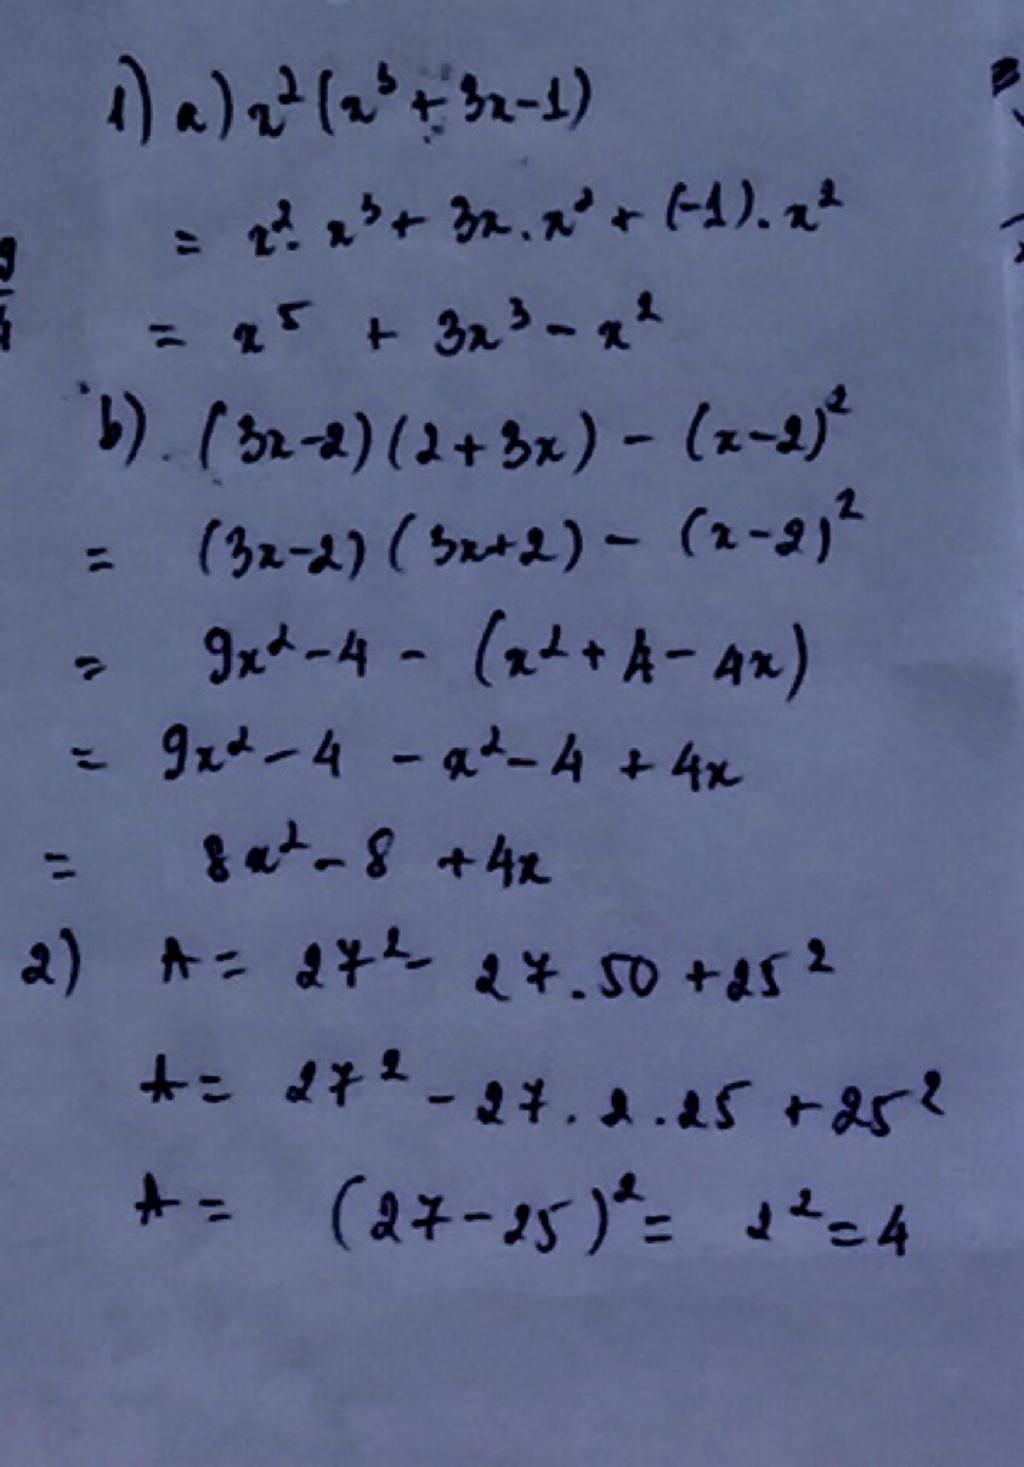 1) a) x²(x³ + 3x - 1)
= x². x³ + 3x. x² + (-1). x²
= x⁵ + 3x³ - x²
b). (3x-2)(2+3x) - (x-2)²
= (3x-2)(3x+2) - (x-2)²
= 9x² - 4 - (x² + 4 - 4x)
= 9x² - 4 - x² - 4 + 4x
= 8x² - 8 + 4x
2) A = 27² - 27.50 + 25²
A = 27² - 27.2.25 + 25²
A = (27-25)² = 2² = 4